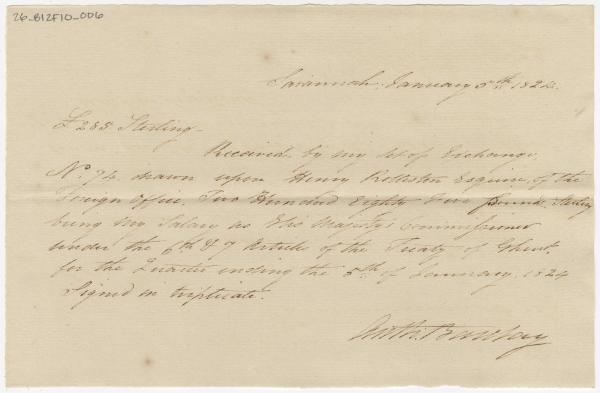 26_B12F10_006
Savannah, January 5th 1824.
£285 Sterling
Received by my Set of Exchange,
No. 74 drawn upon Henry Rolleston Esquire, of the
Foreign Office, Two Hundred Eighty Five pounds Sterling
being my Salary as His Majesty's Commissioner
under the 6th & 7 Article of the Treaty of Ghent,
for the Quarter ending the 5th of January, 1824
Signed in triplicate.
Anth. Barclay